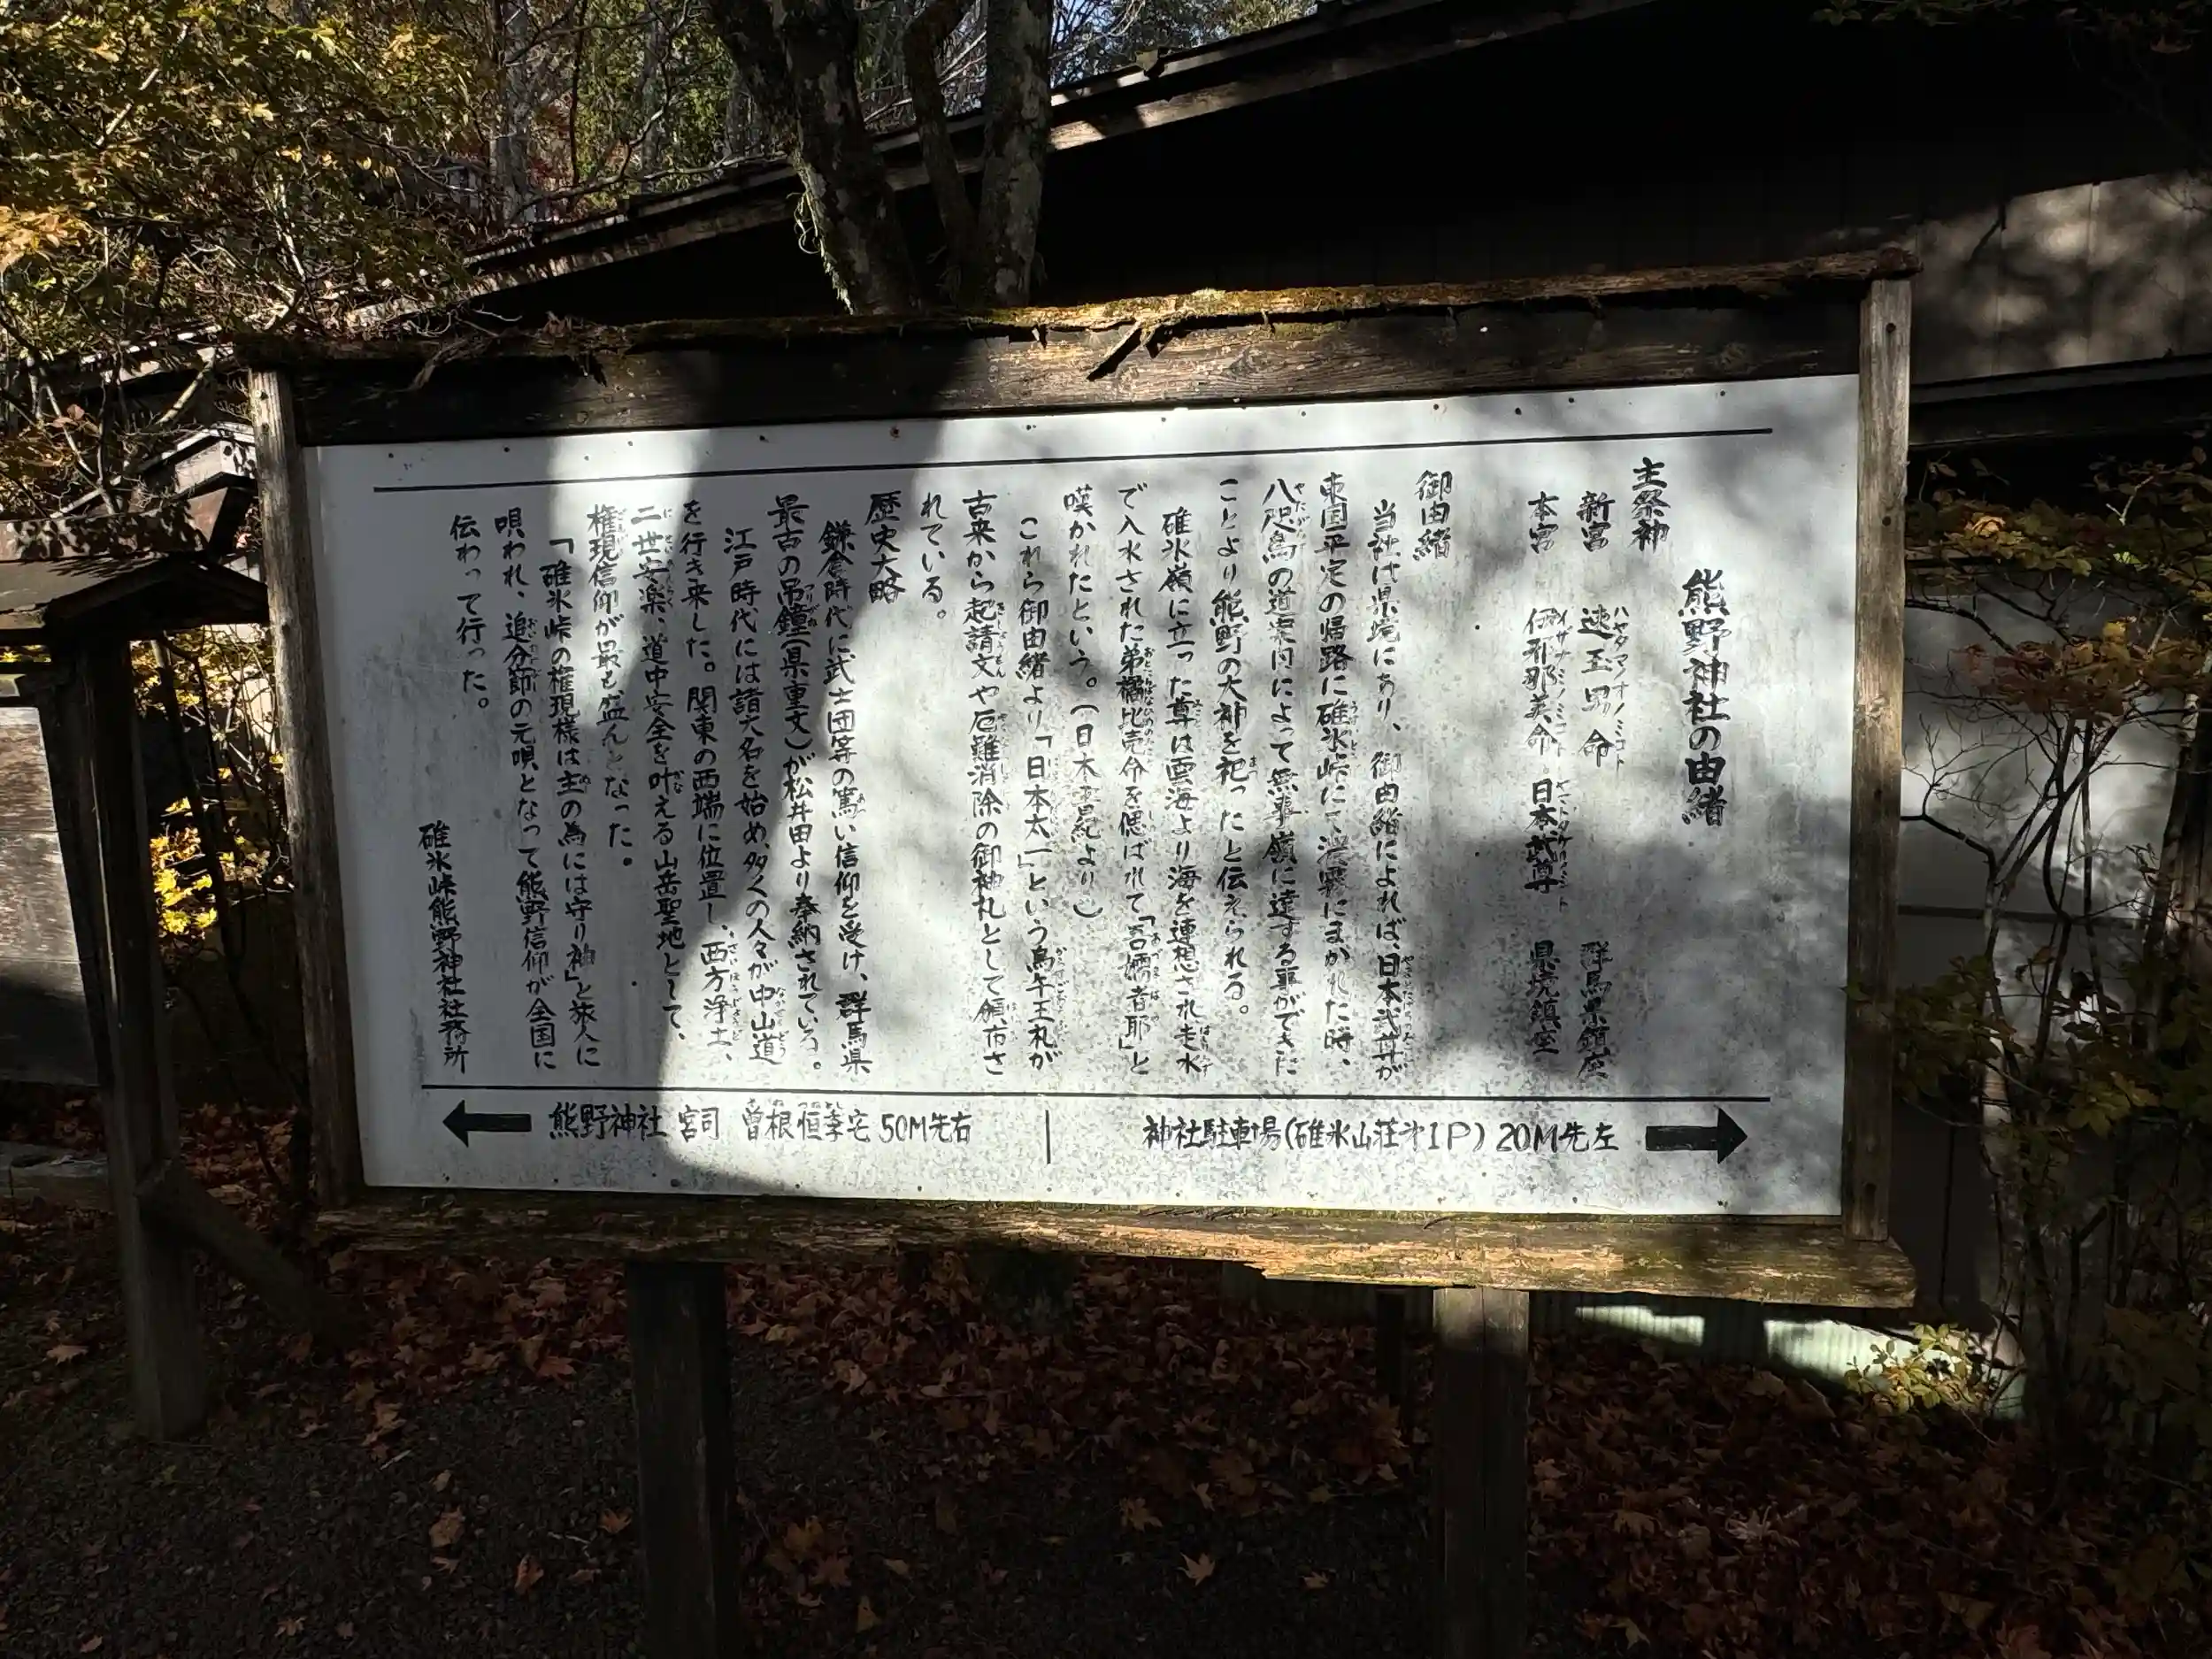 熊野神社の由緒
主祭神
新宮 速玉男命 群馬県鎮座
本宮 伊邪那美命 日本武尊 県境鎮座
御由緒
当社は県境にあり、御由緒によれば、日本武尊が
東国平定の帰路に碓氷峠にて濃霧にまかれた時、
八咫烏の道案内によって無事嶺に達する事ができた
ことより熊野の大神を祀ったと伝えられる。
碓氷嶺に立った尊は雲海より海を連想され走水
で入水された弟橘比売命を偲ばれて「吾嬬者耶」と
嘆かれたという。(日本書紀より)
これら御由緒より「日本太一」という烏午王札が
古来から起請文や厄難消除の御神札として頒布さ
れている。
歴史大略
鎌倉時代に武士団等の篤い信仰を受け、群馬県
最古の吊鐘(県重文)が松井田より奉納されている。
江戸時代には諸大名を始め、多くの人々が中山道
を行き来した。関東の西端に位置し、西方浄土、
二世安楽、道中安全を叶える山岳聖地として、
権現信仰が最も盛んとなった。
「碓氷峠の権現様は主の為には守り神」と旅人に
唄われ、追分節の元唄となって熊野信仰が全国に
伝わって行った。
碓氷峠熊野神社社務所
熊野神社 宮司 曽根恒季宅 50M先右
神社駐車場(碓氷山荘オ1P) 20M先左